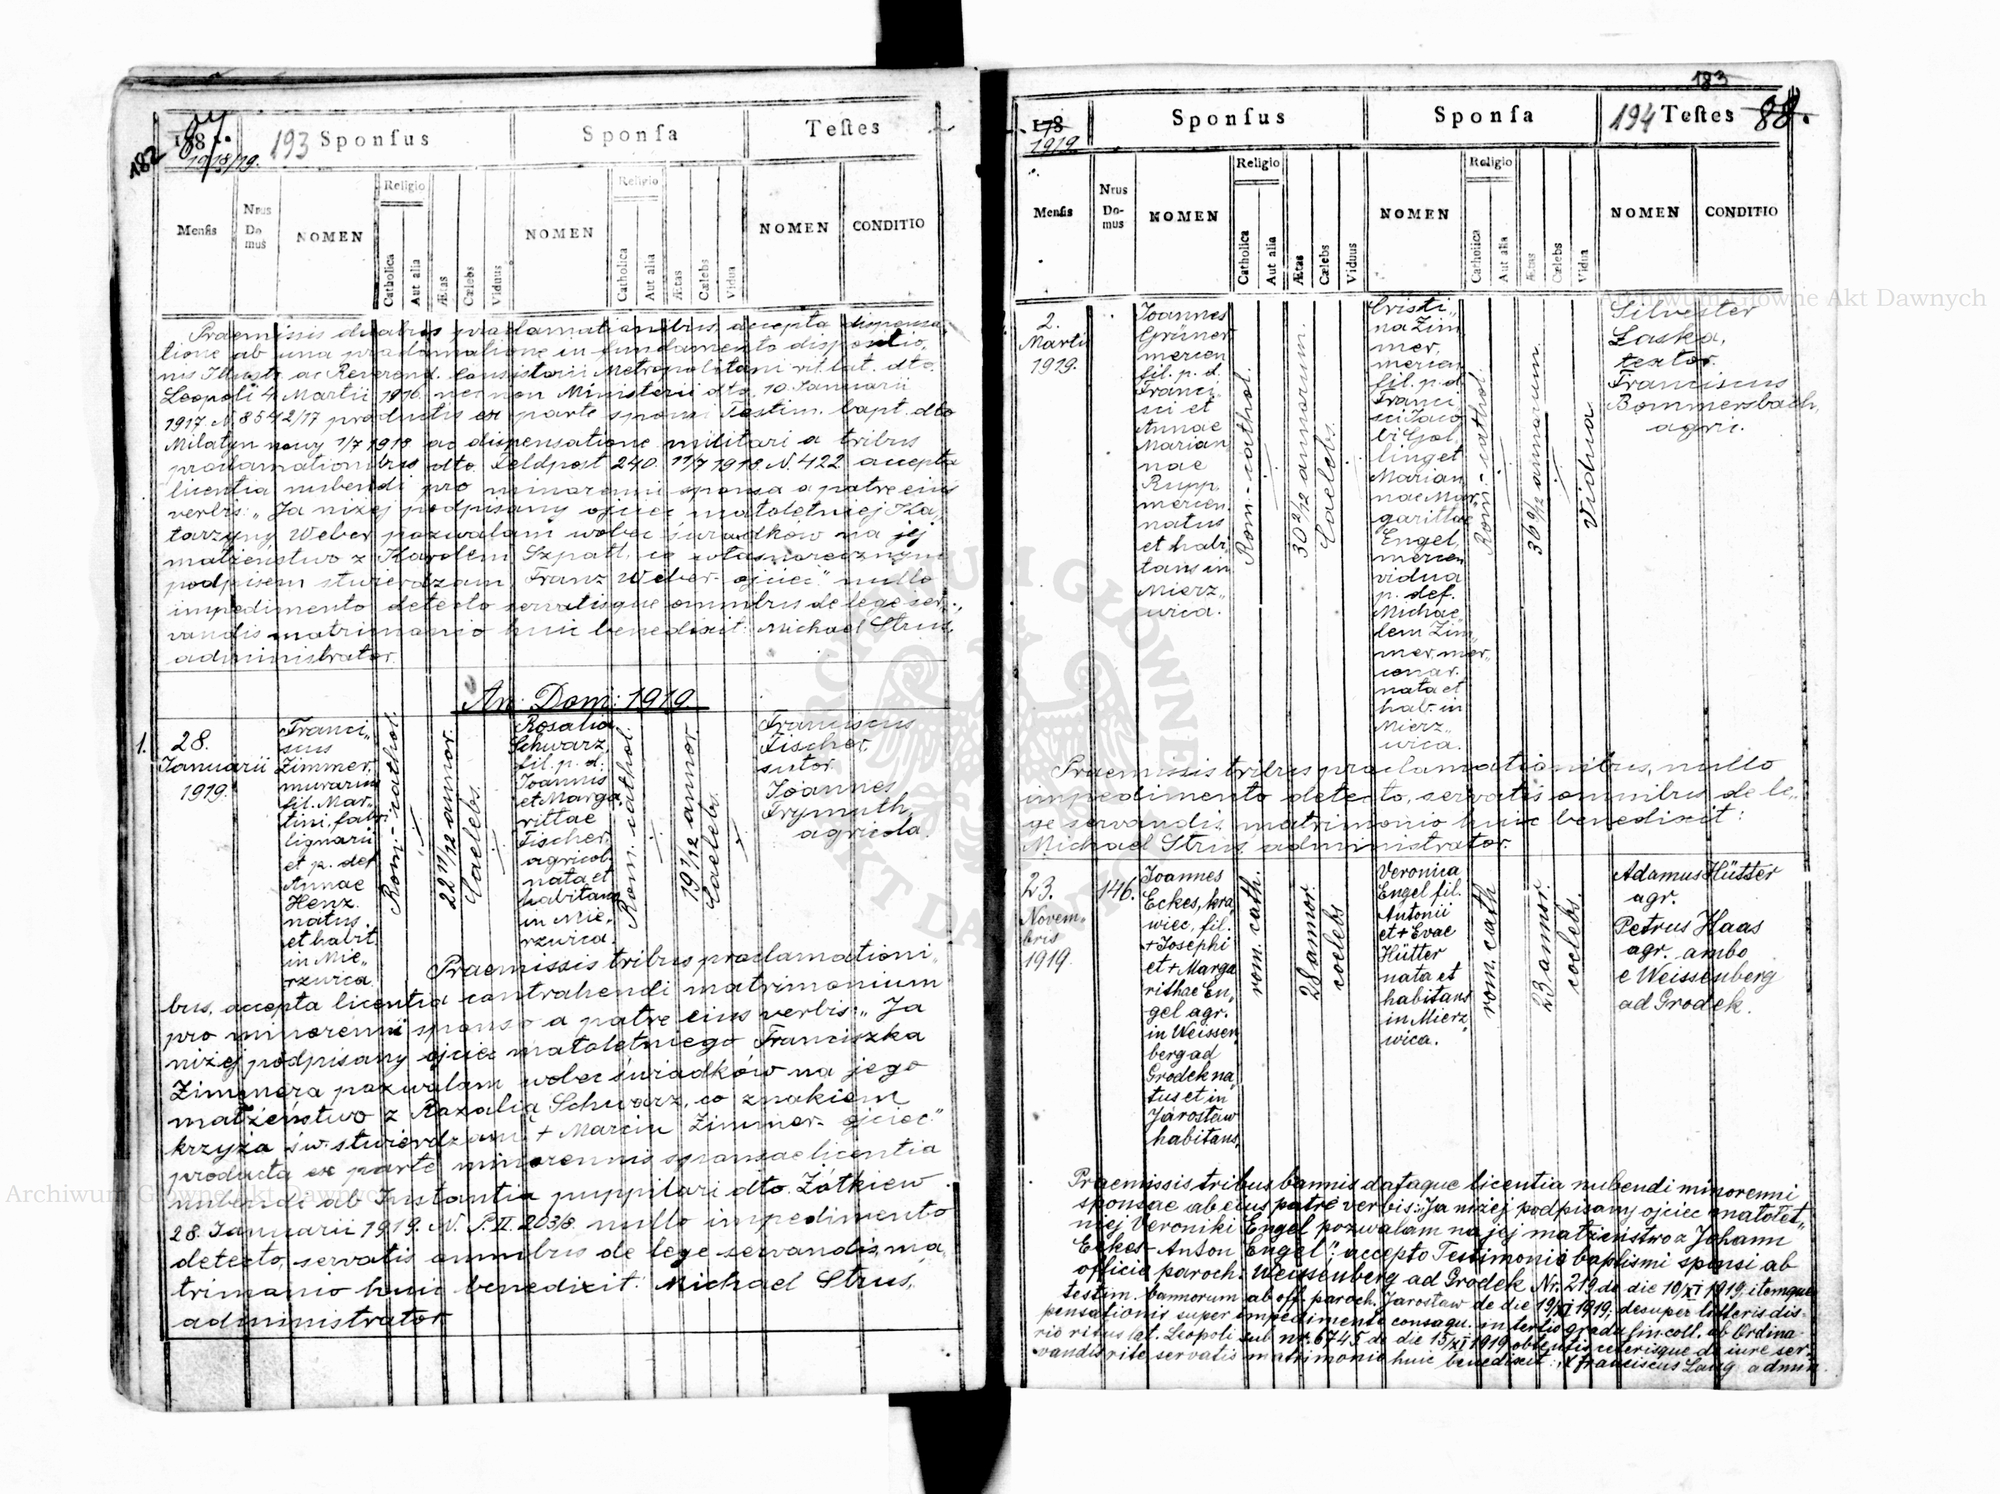 87.
182
1918/19.
193 Sponsus
Sponsa
Testes
Mensis
Nrus Domus
NOMEN
Religio
Catholica
Aut alia
Ætas
Cælebs
Viduus
NOMEN
Religio
Catholica
Aut alia
Ætas
Cælebs
Vidua
NOMEN
CONDITIO
Praemissis duabus proclamationibus, accepta dispensa-
tione ab una proclamatione in fundamento dispositio-
nis Illustr. ac Reverend. Consistorii Metropolitani rit. lat. dto.
Leopoli 4. Martii 1916. necnon Ministerii dto. 10. Januarii
1917. N. 8542/17 productis ex parte sponsi Testim. bapt. dto
Milatyn nowy 1/7 1918 ac dispensatione militari a tribus
proclamationibus dto. Feldpost 240. 11/7 1918. N. 422 accepta
licentia nubendi pro minorenni sponsa a patre eius
verbis: „Ja niżej podpisany ojciec małoletniej Ka-
tarzyny Weber pozwalam wobec świadków na jej
małżeństwo z Karolem Szpatl, co własnoręcznym
podpisem stwierdzam, Franz Weber- ojciec." nullo
impedimento detecto servatisque omnibus de lege ser-
vandis matrimonio huic benedixit: Michael Strus,
administrator.
An. Dom: 1919.
1.
28.
Januarii
1919.
Franci-
scus
Zimmer,
murarius
fil. Mar-
tini, fabri
lignarii
et p. def
Annae
Henz.
natus
et habit.
in Mie-
rzwica.
Rom.-cathol.
22 11/12 annor.
Caelebs.
Rosalia
Schwarz,
fil. p. d.
Joannis
et Marga
rittae
Fischer,
agricol.
nata et
habitans
in Mie-
rzwica.
Rom. cathol.
19 7/12 annor
Caelebs.
Franciscus
Fischer,
sutor
Joannes
Frymuth,
agricola.
Praemissis tribus proclamationi-
bus, accepta licentia contrahendi matrimonium
pro minorenni sponso a patre eius verbis: „Ja
niżej podpisany ojciec małoletniego Franciszka
Zimmera pozwalam wobec świadków na jego
małżeństwo z Rozalią Schwarz, co znakiem
krzyża św. stwierdzam + Marcin Zimmer- ojciec"
producta ex parte minorennis sponsae licentia
nubendi ab Instantia puppilari dto. Żółkiew
28. Januarii 1919. N. P.II. 203/8. nullo impedimento
detecto, servatis omnibus de lege servandis, ma-
trimonio huic benedixit: Michael Strus,
administrator
183
178
1919
Sponsus
Sponsa
194 Testes 88.
Mensis
Nrus Domus
NOMEN
Religio
Catholica
Aut alia
Ætas
Cælebs
Viduus
NOMEN
Religio
Catholica
Aut alia
Ætas
Cælebs
Vidua
NOMEN
CONDITIO
2.
Martii
1919.
Joannes
Grüner
mercen
fil. p. d.
Franci-
sci et
Annae
Marian-
nae
Rupp
mercen.
natus
et habi-
tans in
Mierz-
wica.
Rom.-cathol.
30 2/12 annorum.
Caelebs.
Cristi-
na Zim
mer,
mercen
fil. p. d.
Franci
sci Jaco
bi Gol,
ling et
Marian
nae Mar
garittae
Engel,
mercen
vidua
p. def.
Michae
lem Zim-
mer, mer-
cenar.
nata et
hab. in
Mierz-
wica.
Rom.-cathol.
36 9/12 annorum.
Vidua.
Silvester
Laska,
textor.
Franciscus
Bommersbach,
agric.
Praemissis tribus proclamationibus, nullo
impedimento detecto, servatis omnibus de le-
ge servandis matrimonio huic benedixit:
Michael Strus administrator.
23.
Novem-
bris
1919.
146.
Joannes
Eckes, kra
wiec, fil.
+ Josephi
et + Marga
rithae En-
gel agr.
in Weissen
berg ad
Grodek na,
tus et in
Jarosław
habitans.
rom. cath.
28 annor.
coelebs
Veronica
Engel fil.
Antonii
et + Evae
Hütter
nata et
habitans
in Mierz-
wica.
rom. cath
23 annor.
coelebs.
Adamus Hütter
agr.
Petrus Haas
agr. ambo
e Weissenberg
ad Grodek.
Praemissis tribus bannis dataque licentia nubendi minorenni
sponsae ab eius patre verbis: „Ja niżej podpisany ojciec małolet-
niej Veroniki Engel pozwalam na jej małżeństwo z Johann
Eckes - Anton Engel"; accepto Testimonio baptismi sponsi ab
officio paroch. Weissenberg ad Grodek Nr. 219 de die 10/XI 1919, itemque
testim. bannorum ab off. paroch. Jarosław de die 19/XI 1919, desuper litteris dis-
pensationis super impedimento consagu. in tertio gradu lin. coll. ab Ordina
rio ritus lat. Leopoli sub nr. 6745 de die 15/XI 1919 obtentis ceterisque de iure ser-
vandis rite servatis matrimonio huic benedixit: X Franciscus Lang admin.
Archiwum Główne Akt Dawnych
Archiwum Główne Akt Dawnych
ARCHIWUM GŁÓWNE AKT DAWNYCH